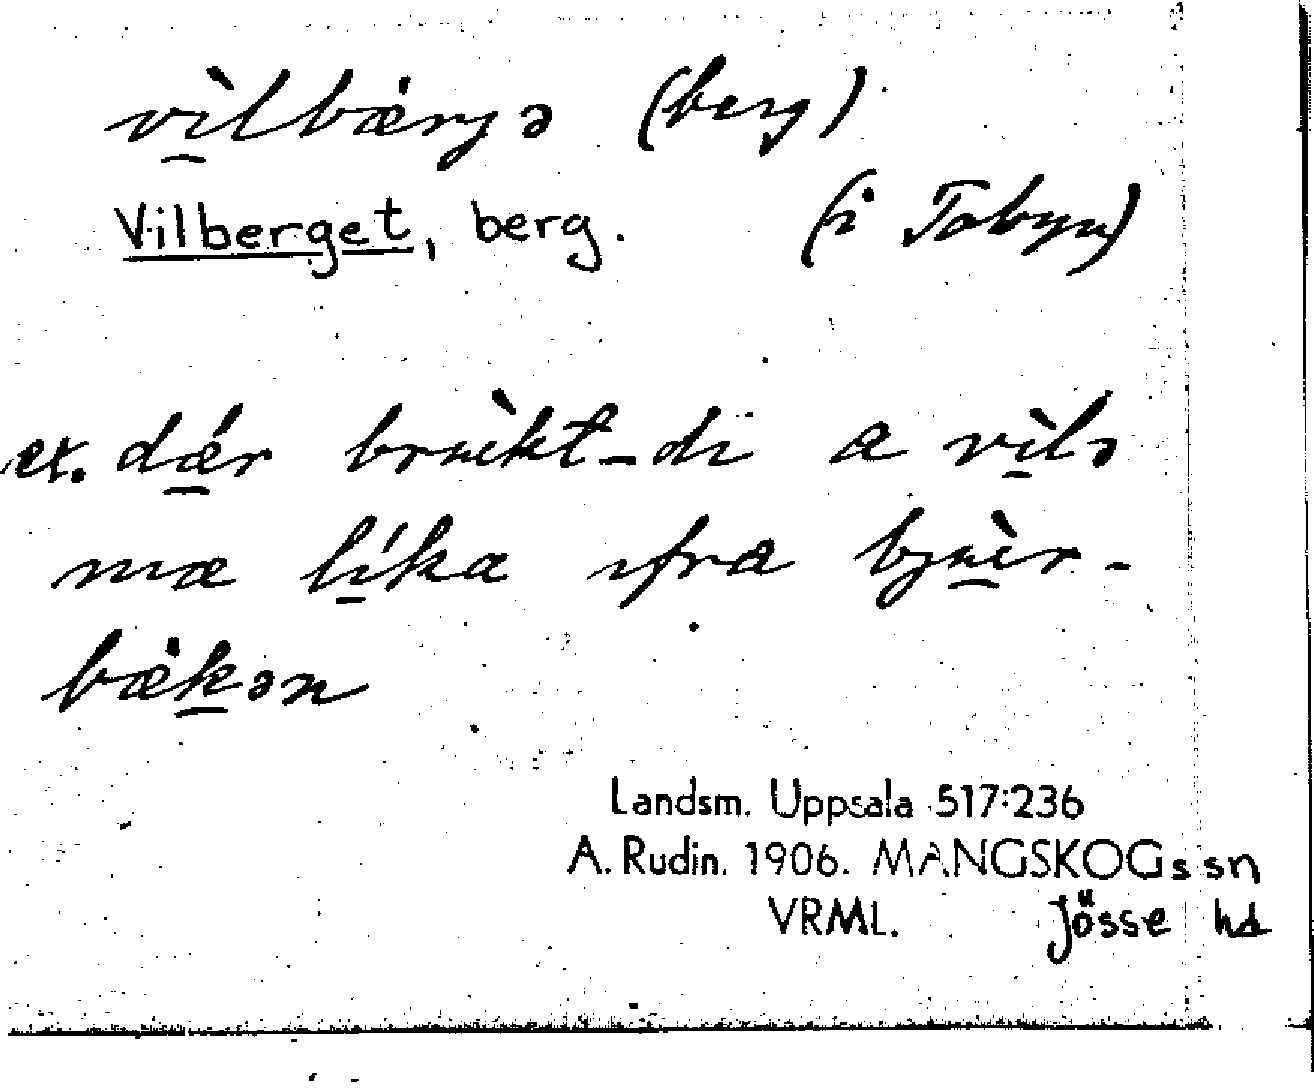 vi̠̇̀lbǽrgə (berg)
Vilberget, berg. (i Tobyn)
ex. dǽ̠r brùkt-di a vì̠lə
mæ lí̠ka ifra bjǜr-
bækən
Landsm. Uppsala 517:236
A. Rudin. 1906. MANGSKOGs sn
VRML. Jösse hd